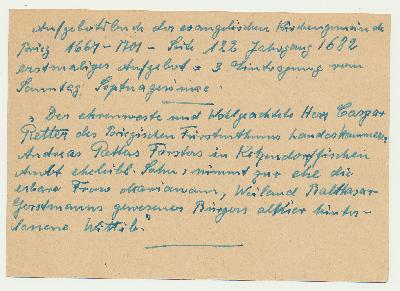 Aufgebotsbuch der evangelischen Kirchengemeinde
Brieg 1667-1701 - Seite 122 Jahrgang 1682
erstmaliges Aufgebot = 3 Eintragung vom
Sonntag Septuagesimae.
"Der ehrenveste und Wohlgeachtete Herr Caspar
Retter des Briegischen Fürstenthums Landeskammerer,
Andreas Retters Försters in Ketzendorffischen
Ambt eheleibl. Sohn, nimmt zur Ehe die
erbare Frow Mariamam, Weiland Balthasar
Gerstmanns gewesenen Bürgers allhier hinter-
lassene Wittib."